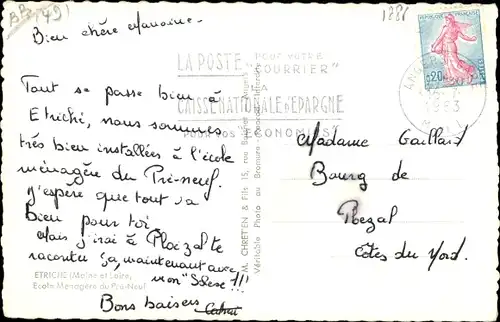 (BB 49)
1881
Bien chère Marraine.
Tout se passe bien à
Etriché, nous sommes
très bien installées à l'école
ménagère du Pré-neuf.
J'espère que tout va
Bien pour toi
Mais j'irai à Ploëzal te
raconter ça, maintenant avec
mon "Stése"!!!
Bons baisers
LA POSTE POUR VOTRE
"COURRIER"
LA
CAISSE NATIONALE D'EPARGNE
POUR VOS "ECONOMIES"
REPUBLIQUE FRANÇAISE
0,20
POSTES
ANGERS
1963
M. CHRETEN & Fils 15, rue
Véritable Photo au Bromure - Reproduction Interdite
Madame Gaillard
Bourg de
Ploezal
Côtes du Nord.
ETRICHE (Maine et Loire)
Ecole Ménagère du Pré-Neuf